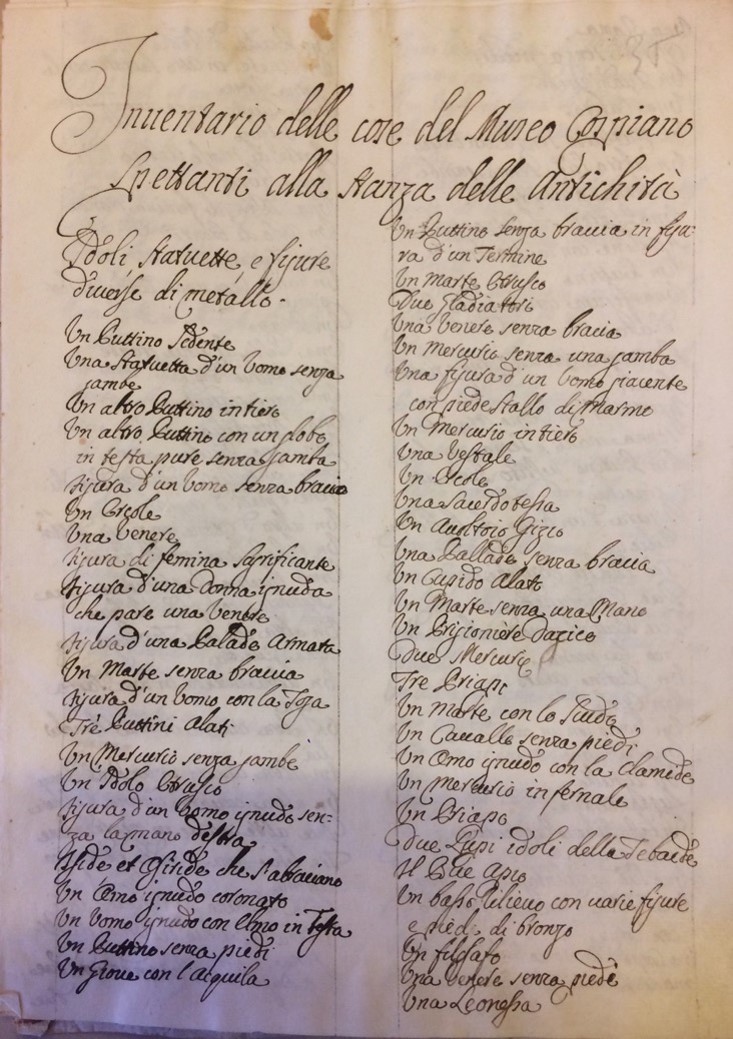 Inventario delle cose del Museo Cospiano
Spettanti alla stanza delle Antichità
Idoli, statuette, e figure
diverse di metallo.
Un Puttino sedente
Una statuetta d'un Uomo senza
gambe
Un altro Puttino intiero
Un altro Puttino con un globo
in testa pure senza gamba
figura d'un Uomo senza braccia
Un Ercole
Una Venere
figura di femina sagrificante
figura d'una Donna ignuda
che pare una Venere
figura d'una Palade Armata
Un Marte senza braccia
figura d'un Uomo con la Toga
Tre Puttini alati
Un Mercurio senza gambe
Un Idolo Etrusco
figura d'un Uomo ignudo sen-
za la mano destra
Iside et Osiride che s'abraciano
Un Omo ignudo coronato
Un Uomo ignudo con Elmo in Testa
Un Puttino senza piedi
Un Giove con l'Acquila
Un Puttino senza braccia in figu-
ra d'un Termine
Un Marte Etrusco
Due gladiatori
Una Venere senza bracia
Un Mercurio senza una gamba
Una figura d'un Uomo giacente
con piedestallo di Marmo
Un Mercurio intiero
Una Vestale
Un Ercole
Una Sacerdotessa
Un Gizio
Una Pallade senza bracia
Un Cupido Alato
Un Marte senza una Mano
Un Prigioniere Dazico
Due Mercurii
Tre Priapi
Un Marte con lo scudo
Un Cavallo senza piedi
Un Omo ignudo con la Clamide
Un Mercurio infernale
Un Priapo
Due Lupi idoli della Tebaide
Il Bue Apio
Un basso rilievo con varie figure
e piedi di bronzo
Un filosafo
Una Venere senza piede
Una Leonessa